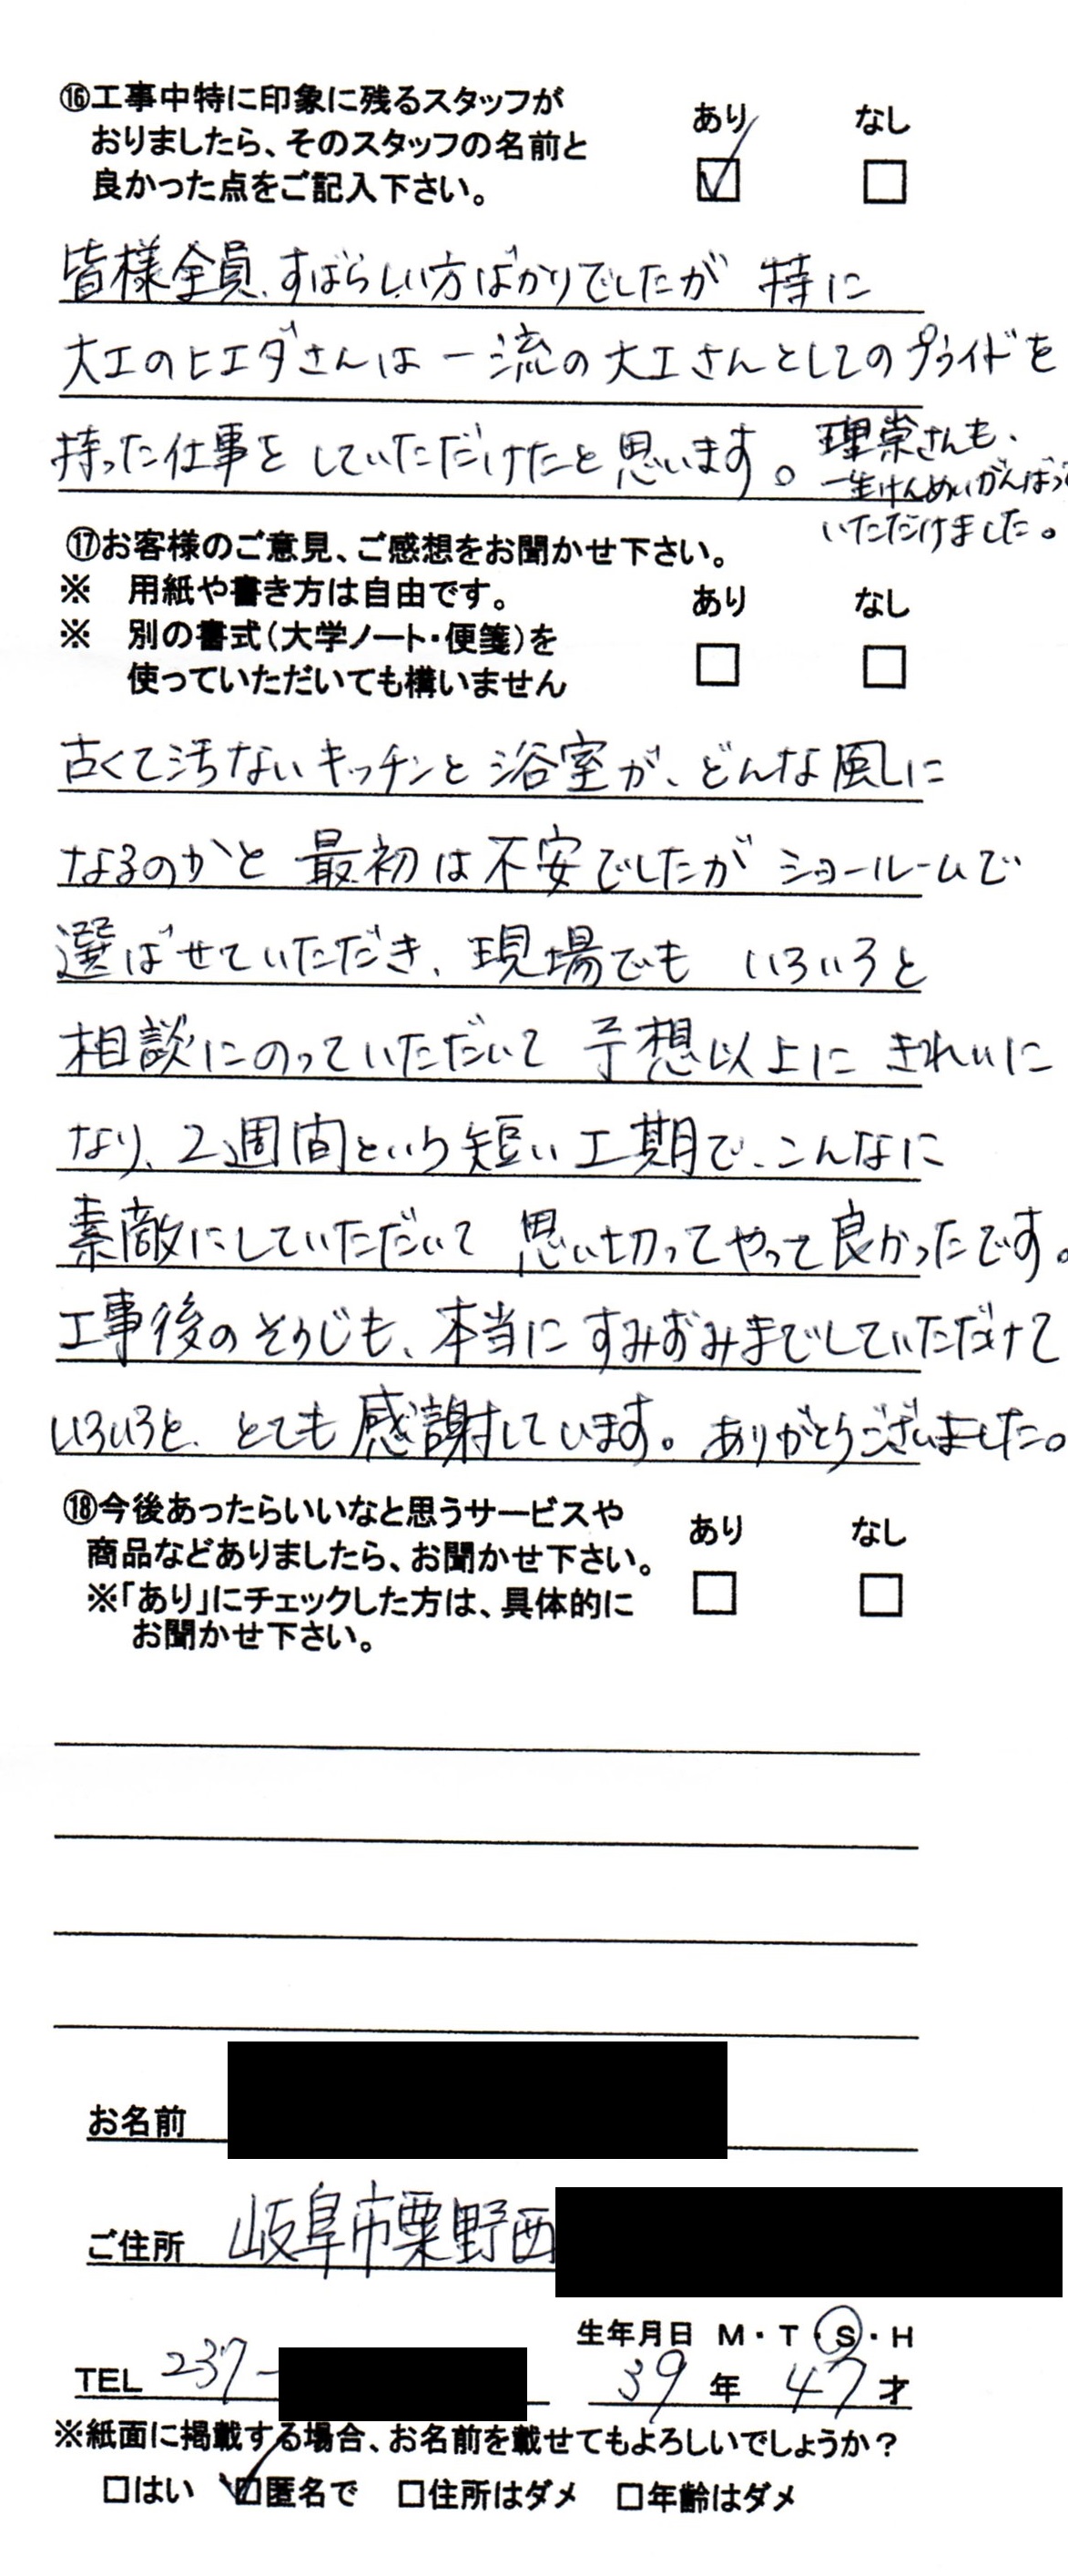 ⑯工事中特に印象に残るスタッフが
おりましたら、そのスタッフの名前と
良かった点をご記入下さい。
あり なし
皆様全員、すばらしい方ばかりでしたが 特に
大工のヒエダさんは 一流の大工さんとしてのプライドを
持った仕事を していただけたと思います。
理崇さんも、
一生けんめいがんばって
いただけました。
⑰お客様のご意見、ご感想をお聞かせ下さい。
※ 用紙や書き方は自由です。
※ 別の書式(大学ノート・便箋)を
使っていただいても構いません
あり なし
古くて汚ないキッチンと浴室が、どんな風に
なるのかと 最初は不安でしたが ショールームで
選ばせていただき、現場でも いろいろと
相談にのっていただいて 予想以上に きれいに
なり、2週間という短い工期で、こんなに
素敵にしていただいて 思い切ってやって良かったです。
工事後のそうじも、本当に すみずみまでしていただけて
いろいろと、とても感謝しています。ありがとうございました。
⑱今後あったらいいなと思うサービスや
商品などありましたら、お聞かせ下さい。
※「あり」にチェックした方は、具体的に
お聞かせ下さい。
あり なし
お名前
ご住所 岐阜市粟野西
生年月日 M・T・S・H
TEL 237- 39年 47才
※紙面に掲載する場合、お名前を載せてもよろしいでしょうか?
□はい □匿名で □住所はダメ □年齢はダメ